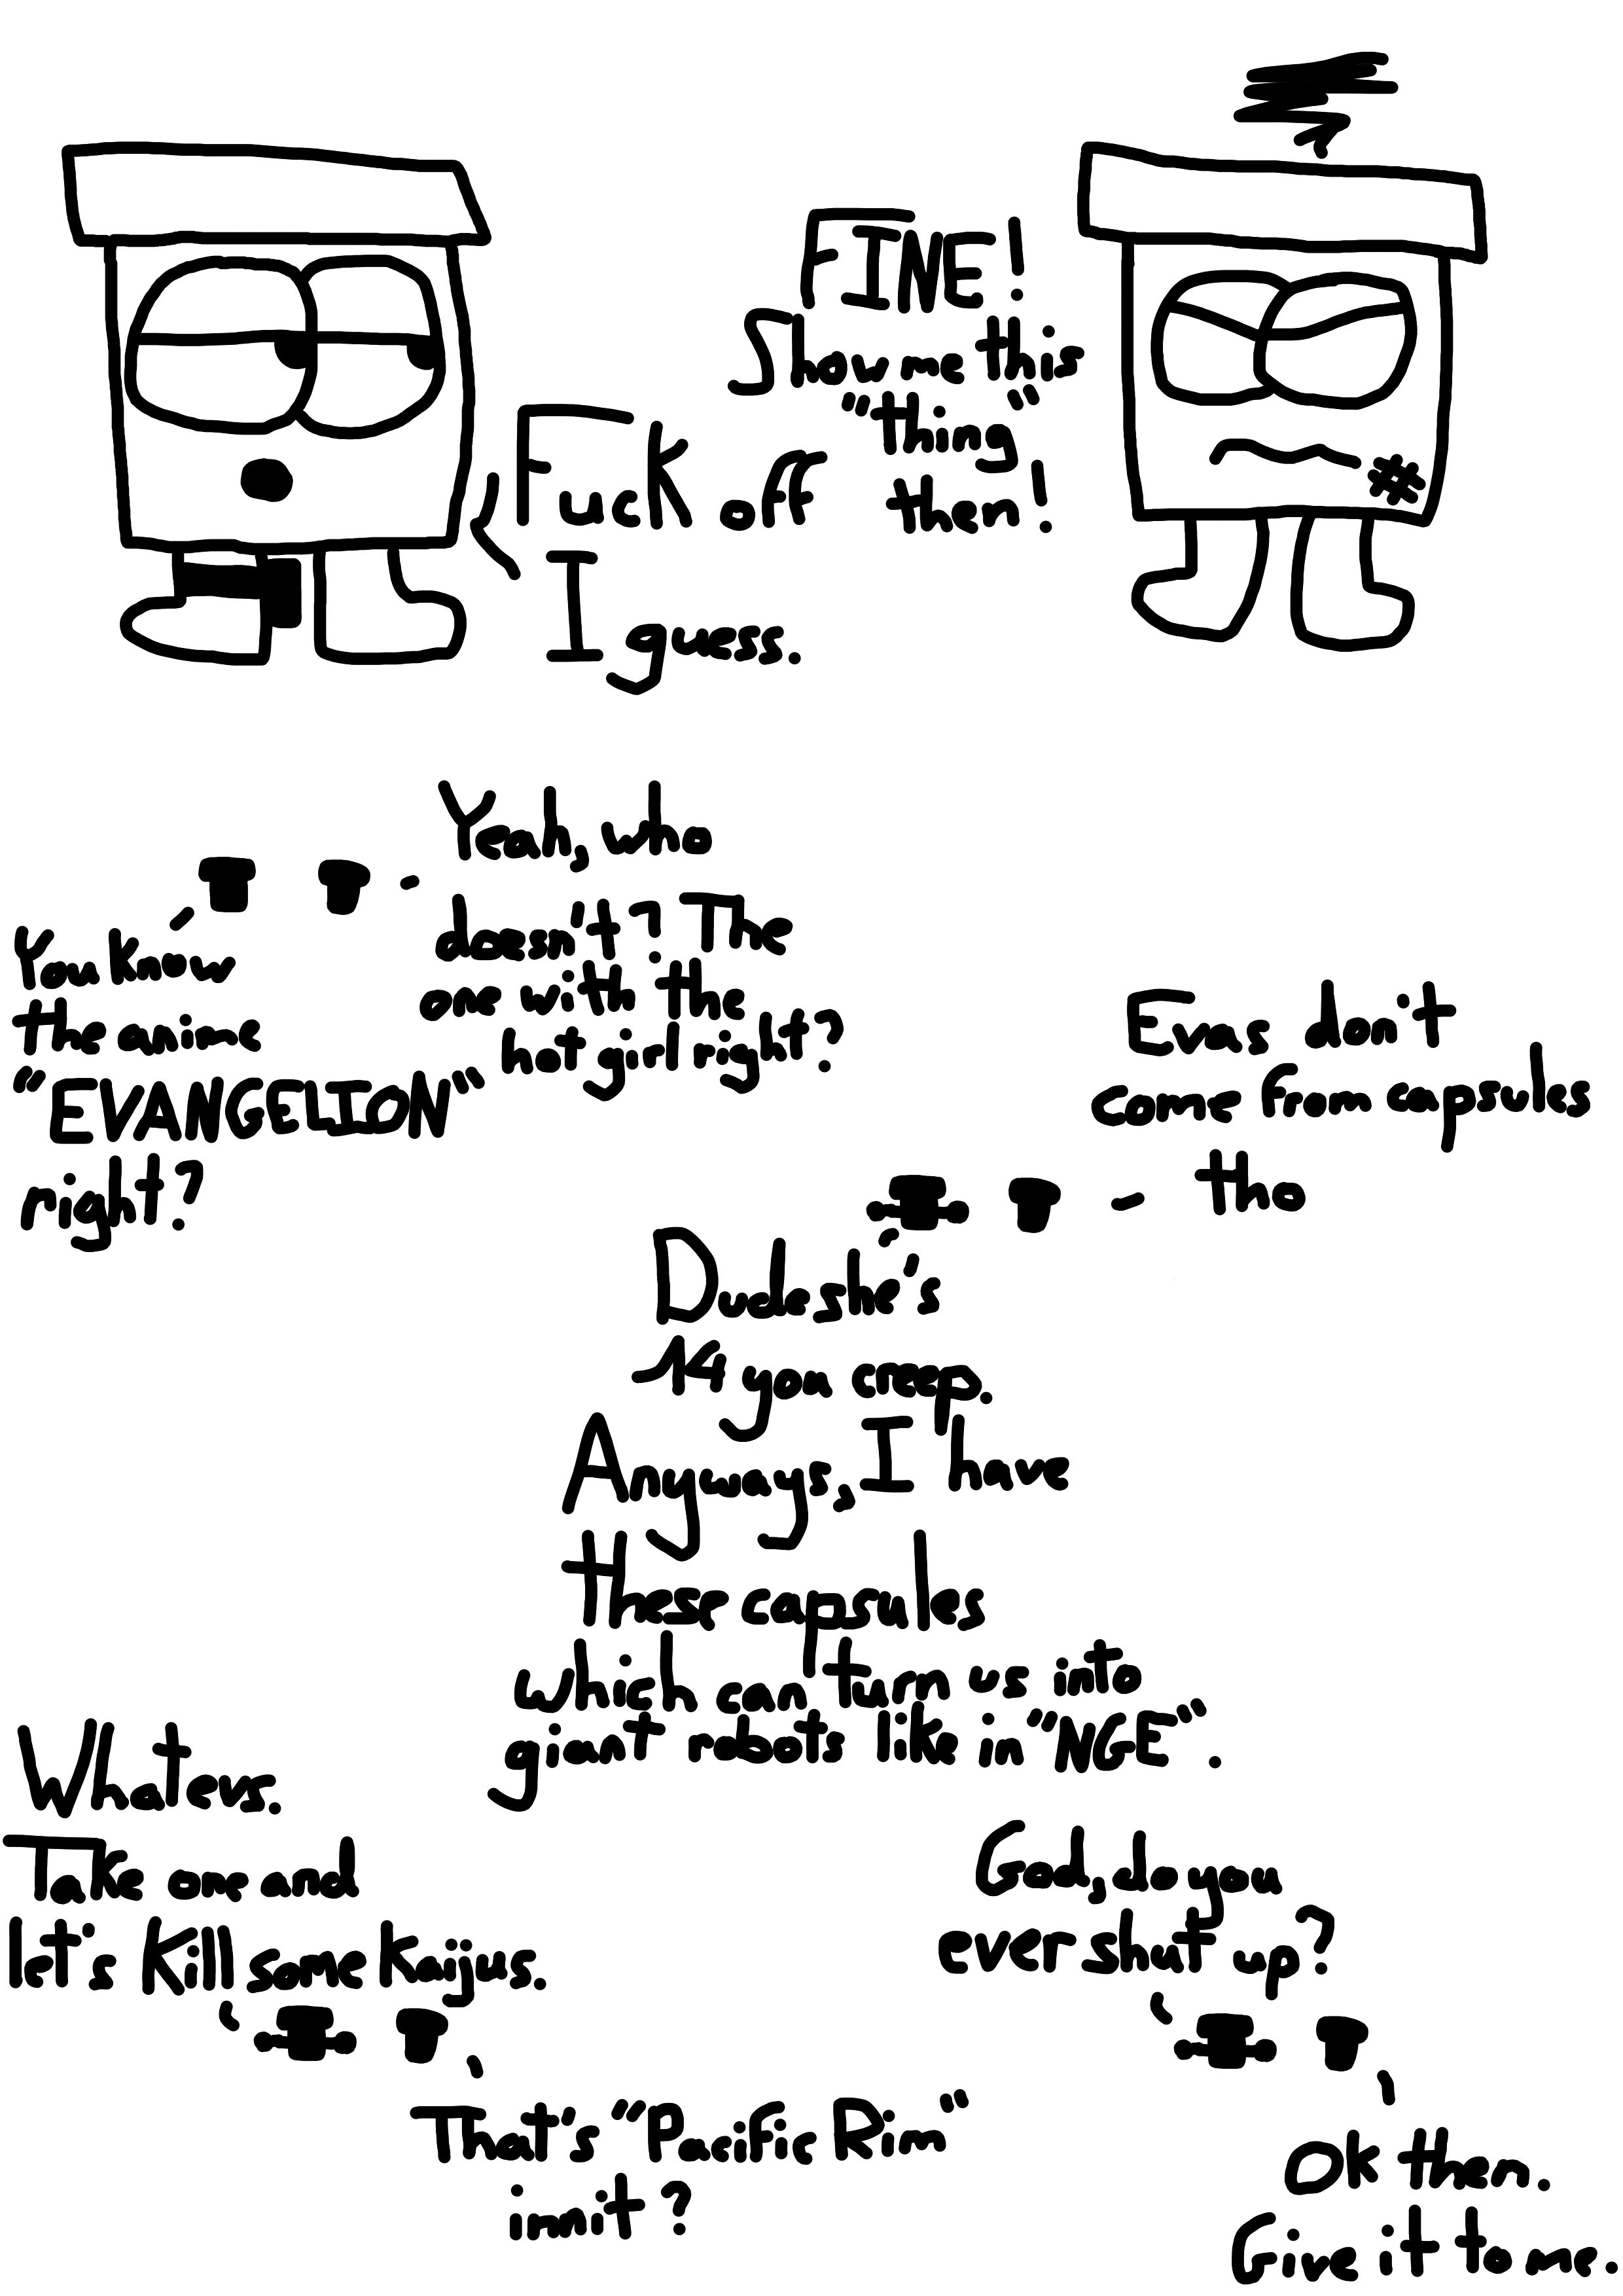 FINE!
Show me this
"thing"
then!
Fuck off
I guess.
You know
the anime
"EVANGELION"
right?
Yeah, who
doesn't? The
one with the
hot girl right?
Dude she's
14 you creep.
Anyways, I have
these capsules
which can turn us into
giant robots like in "NGE".
Evas don't
come from capsules
tho
Whatevs.
Take one and
let's kill some kaijus.
That's "Pacific Rim"
innit?
God, do you
ever shut up?
Ok then.
Give it to me.